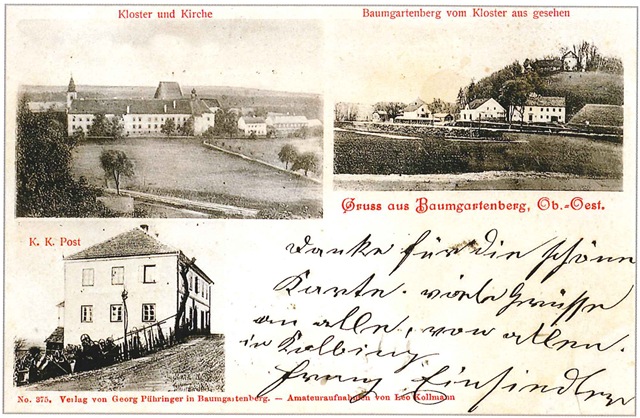 Kloster und Kirche
Baumgartenberg vom Kloster aus gesehen
Gruss aus Baumgartenberg, Ob.-Oest.
K. K. Post
Danke für die schöne
Karte. viele Grüsse
an alle, von allen.
in Kolbing
Franz Einsiedler
No. 375. Verlag von Georg Pühringer in Baumgartenberg. — Amateuraufnahmen von Leo Kollmann